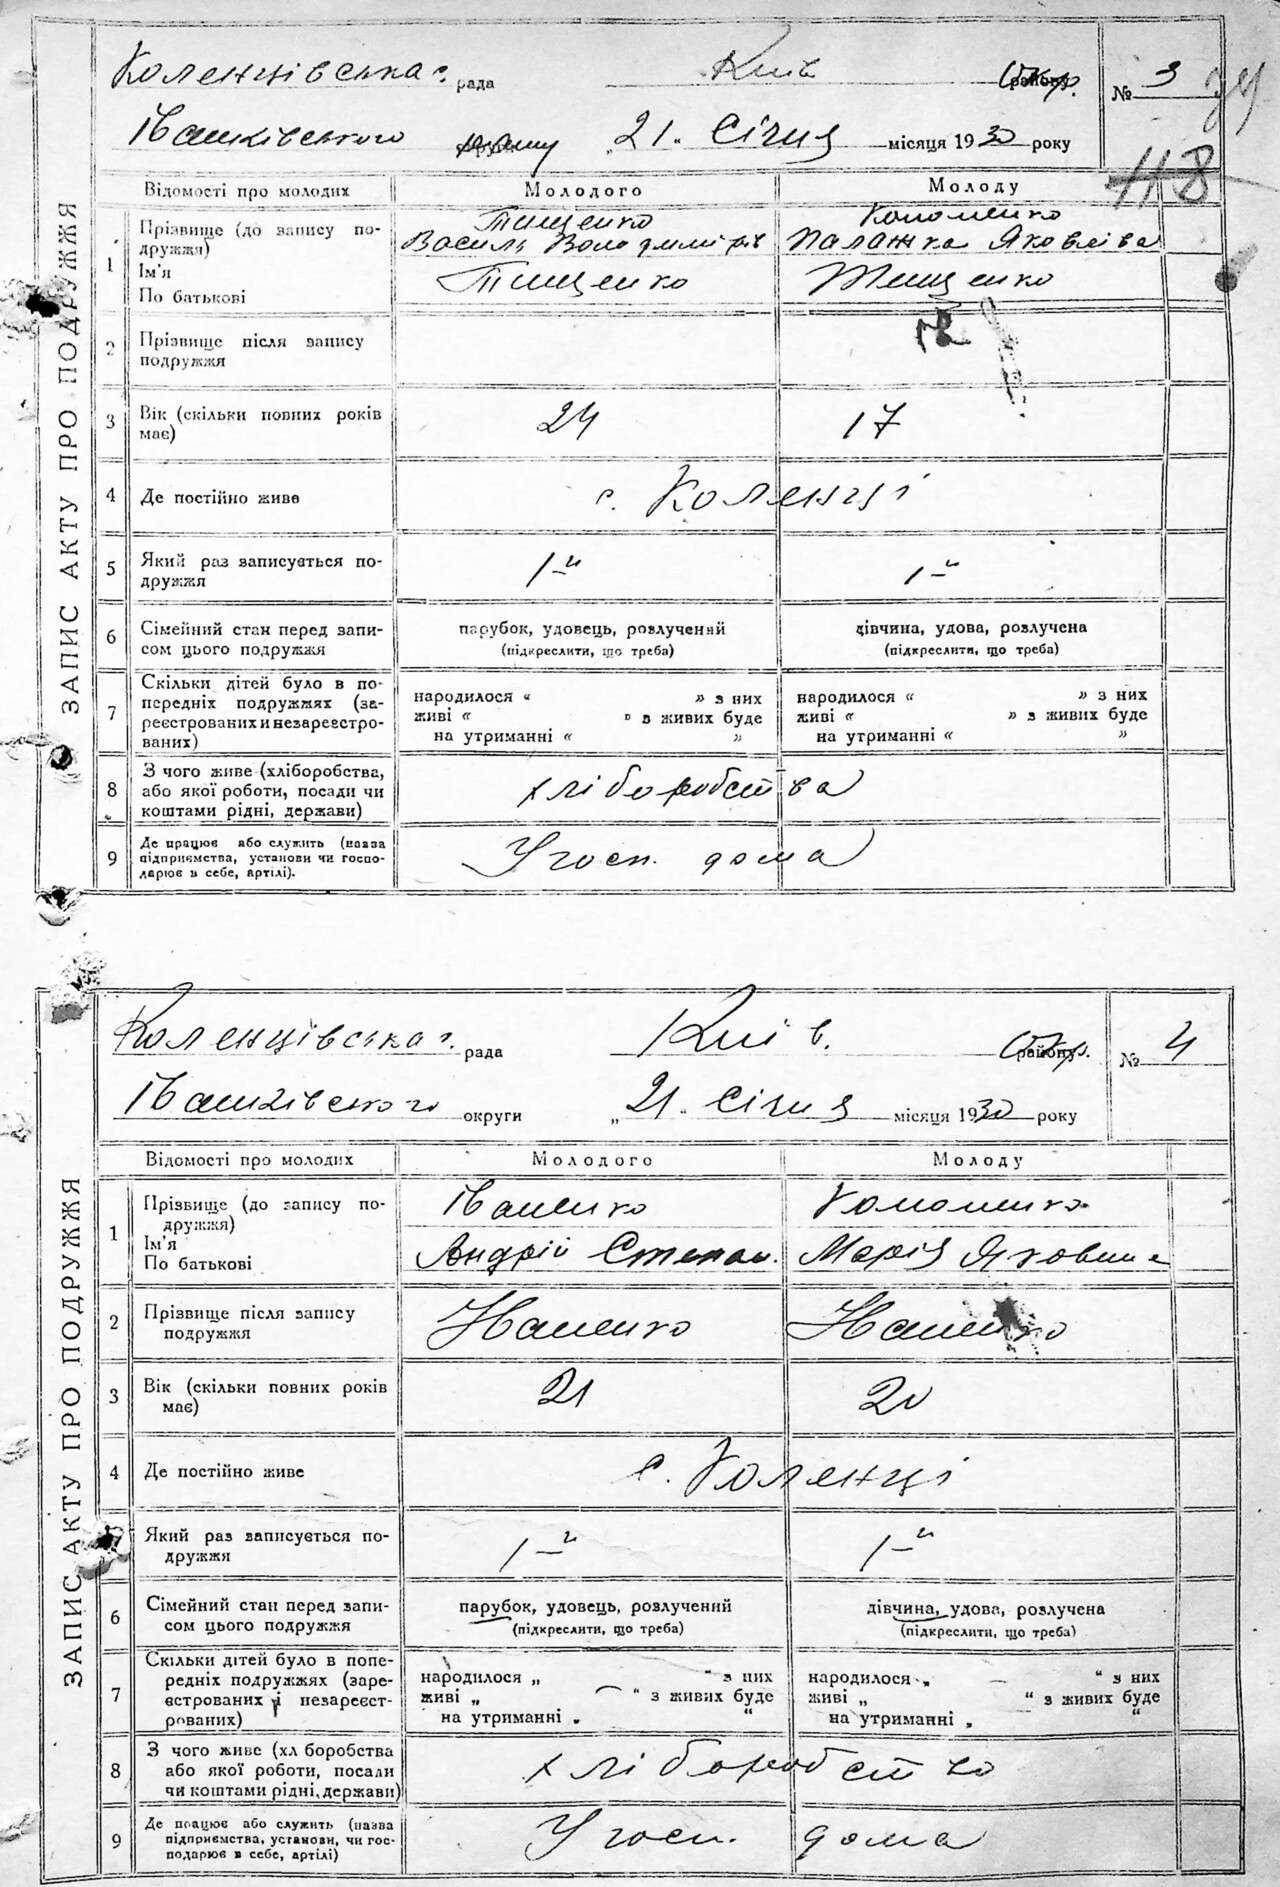 Коленцівська с. рада Київ Окр. № 3
Іванківського району 21. Січня місяця 1930 року
118
ЗАПИС АКТУ ПРО ПОДРУЖЖЯ
Відомості про молодих Молодого Молоду
1 Прізвище (до запису по- Тищенко Кононенко
дружжя) Василь Володимирів Палажка Яковлівна
Ім'я Тищенко Тищенко
По батькові
2 Прізвище після запису
подружжя
3 Вік (скільки повних років 24 17
має)
4 Де постійно живе с. Коленці
5 Який раз записується по- 1-й 1-й
дружжя
6 Сімейний стан перед запи- парубок, удовець, розлучений дівчина, удова, розлучена
сом цього подружжя (підкреслити, що треба) (підкреслити, що треба)
7 Скільки дітей було в по-
передніх подружжях (за- народилося “ ” з них народилося “ ” з них
реєстрованих и незареєстро- живі “ ” з живих буде живі “ ” з живих буде
ваних) на утриманні “ ” на утриманні “ ”
8 З чого живе (хліборобства,
або якої роботи, посади чи хліборобства
коштами рідні, держави)
9 Де працює або служить (назва
підприємства, установи чи госпо- У госп. дома
дарює в себе, артілі).
Коленцівська с. рада Київ. Окр. № 4
Іванківського округи „ 21. Січня місяця 1930 року
ЗАПИС АКТУ ПРО ПОДРУЖЖЯ
Відомості про молодих Молодого Молоду
1 Прізвище (до запису по- Іваненко Кононенко
дружжя)
Ім'я Андрій Степан. Марія Яковлівна
По батькові
2 Прізвище після запису Іваненко Іваненко
подружжя
3 Вік (скільки повних років 21 20
має)
4 Де постійно живе с. Коленці
5 Який раз записується по- 1-й 1-й
дружжя
6 Сімейний стан перед запи- парубок, удовець, розлучений дівчина, удова, розлучена
сом цього подружжя (підкреслити, що треба) (підкреслити, що треба)
7 Скільки дітей було в попе-
редніх подружжях (заре- народилося „ “ з них народилося „ — “ з них
єстрованих і незареєст- живі „ — “ з живих буде живі „ “ з живих буде
рованих) на утриманні „ “ на утриманні „ “
8 З чого живе (хл боробства
або якої роботи, посади хліборобство
чи коштами рідні, держави)
9 Де працює або служить (назва
підприємства, установи, чи гос- У госп. дома
подарює в себе, артілі)